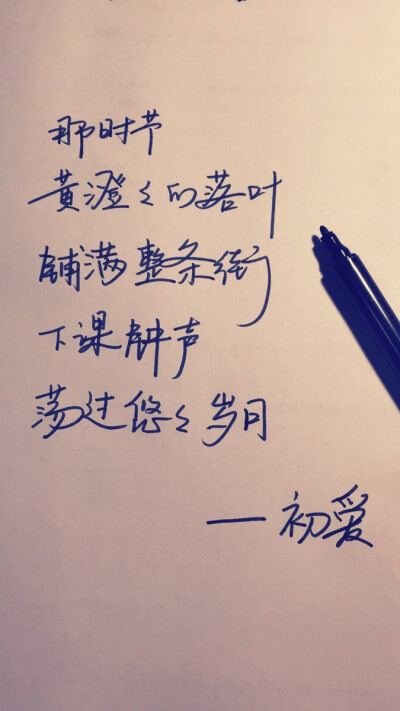 那时节
黄澄々的落叶
铺满整条街
下课钟声
荡过悠々岁月
—初爱